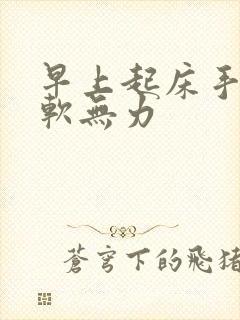 早上起床手
軟無力
蒼穹下的飛豬